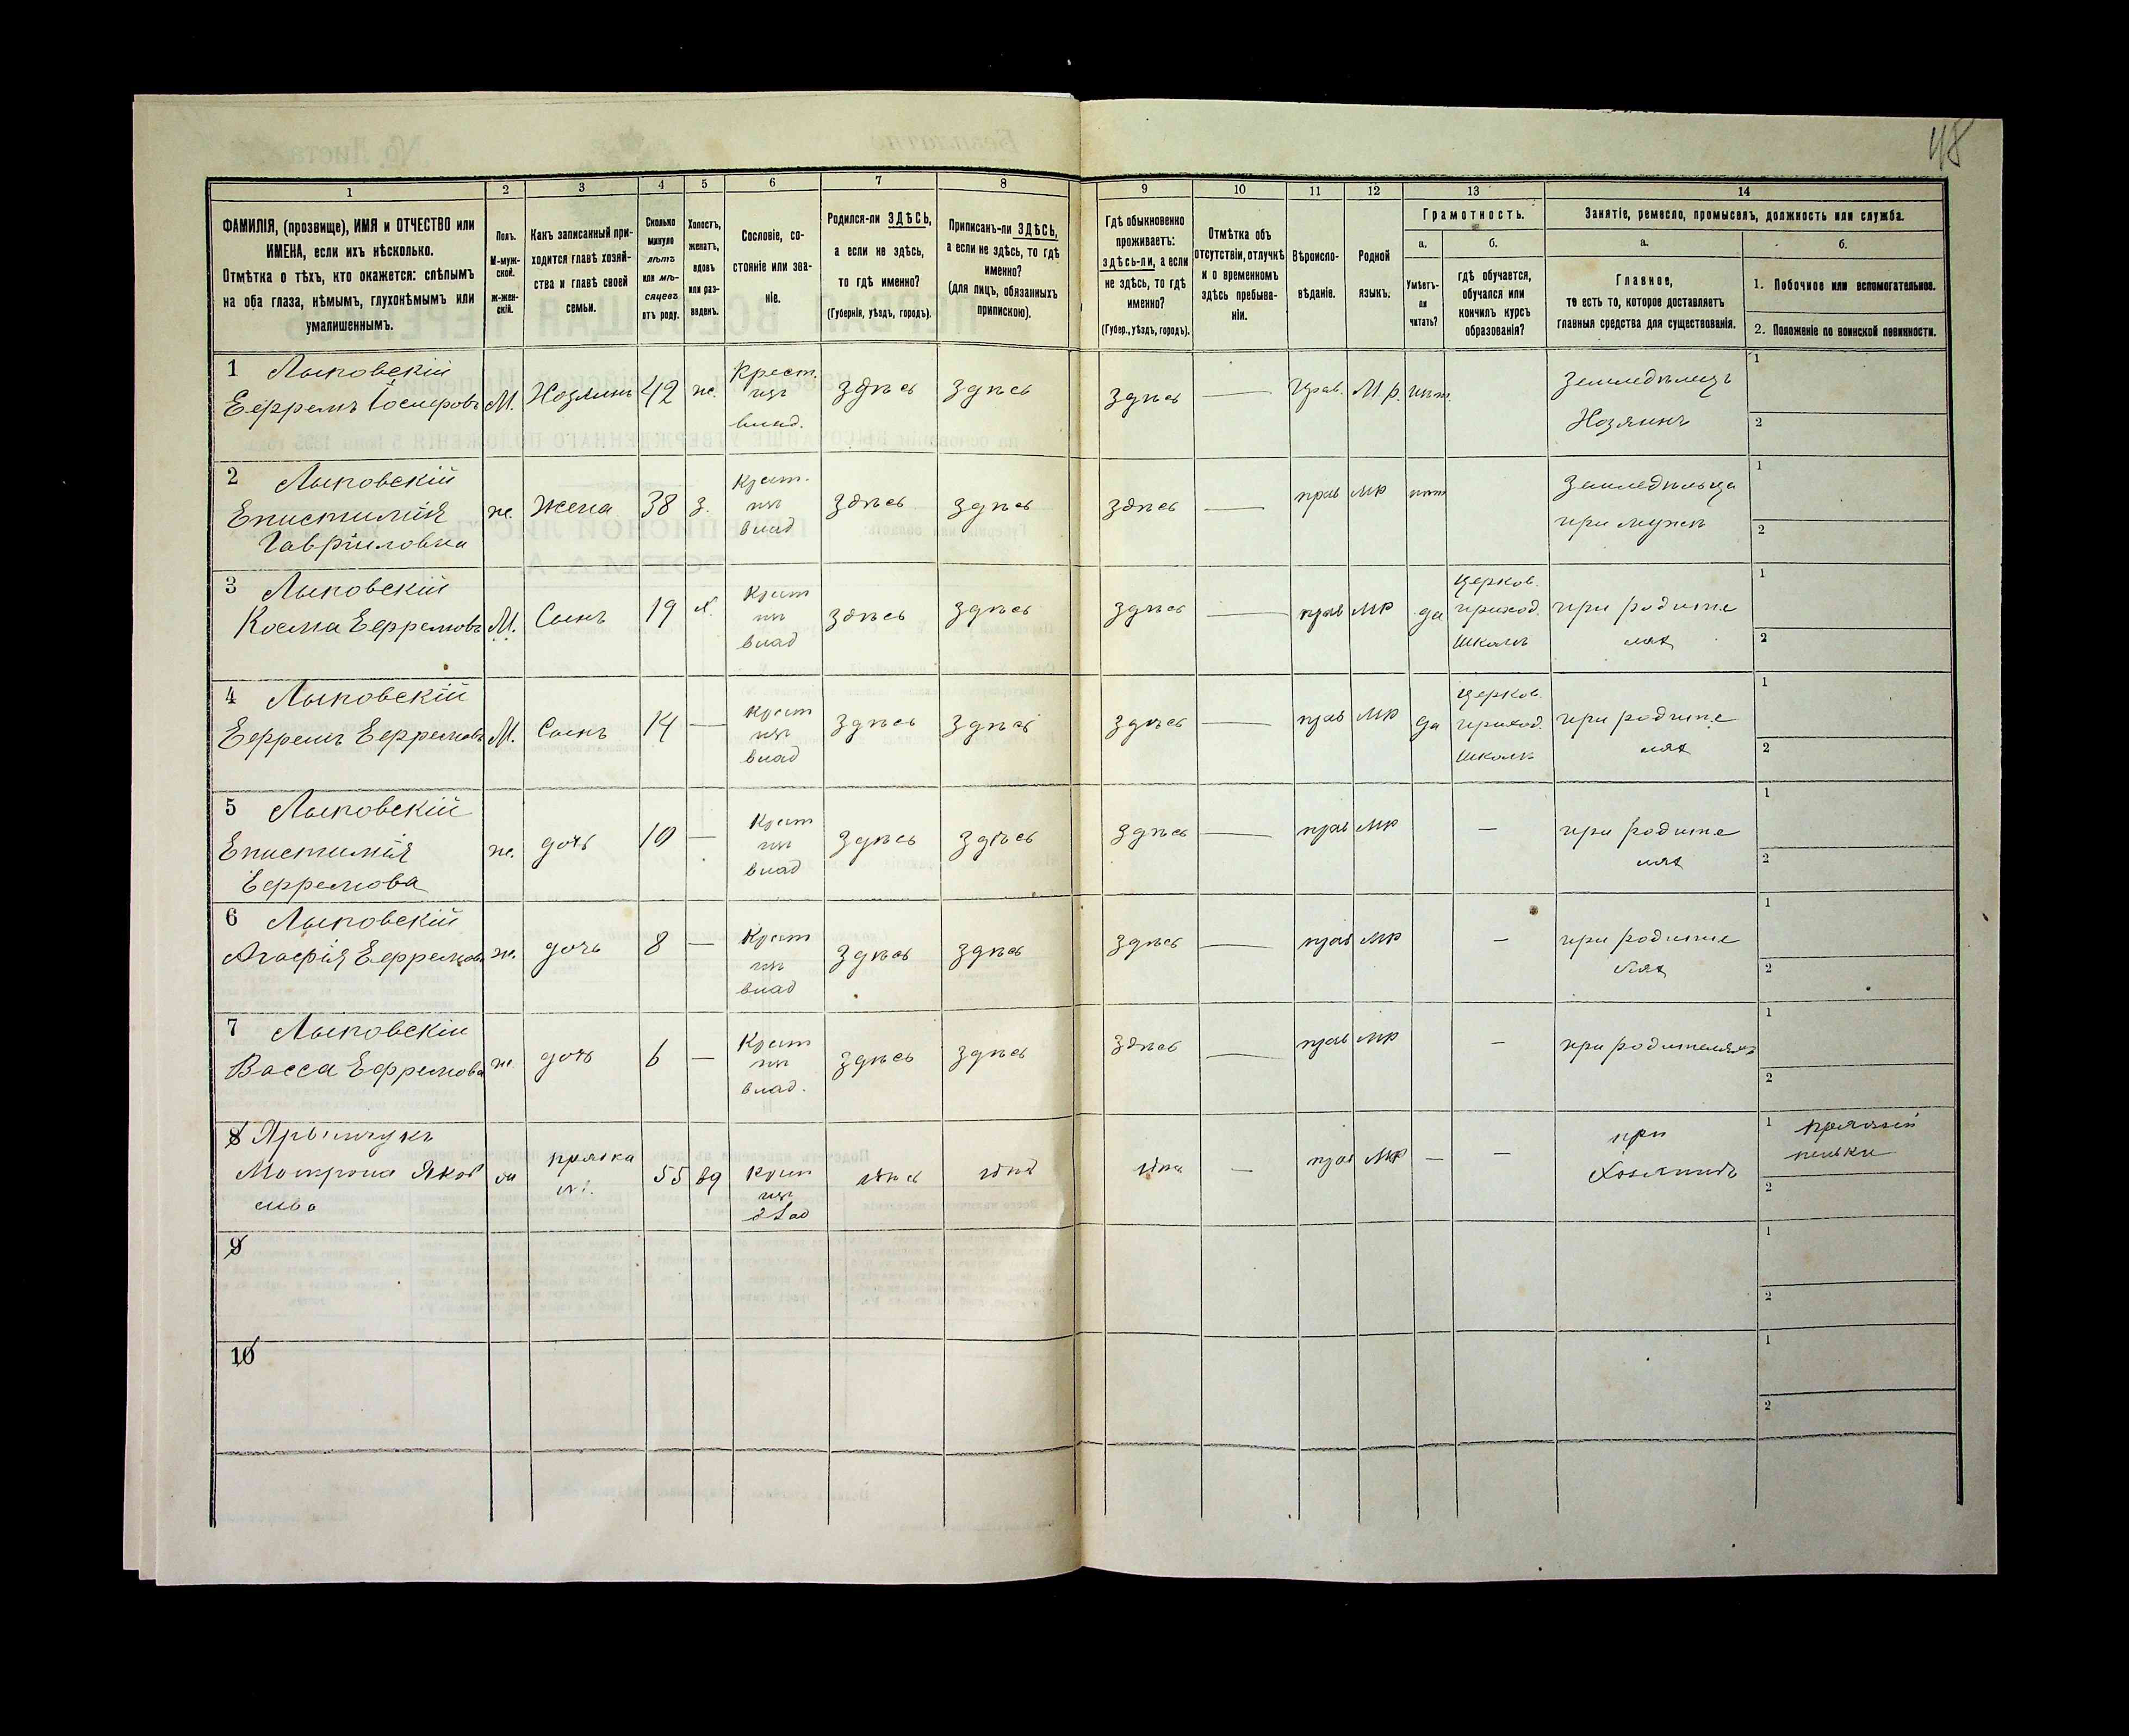 48
1 2 3 4 5 6 7 8 9 10 11 12 13 14
ФАМИЛІЯ, (прозвище), ИМЯ и ОТЧЕСТВО или
ИМЕНА, если ихъ нѣсколько.
Отмѣтка о тѣхъ, кто окажется: слѣпымъ
на оба глаза, нѣмымъ, глухонѣмымъ или
умалишеннымъ.
Полъ.
М-муж-
ской.
ж-жен-
скій.
Какъ записанный при-
ходится главѣ хозяй-
ства и главѣ своей
семьи.
Сколько
минуло
лѣтъ
или мѣ-
сяцевъ
отъ роду.
Холостъ,
женатъ,
вдовъ
или раз-
веденъ.
Сословіе, со-
стояніе или зва-
ніе.
Родился-ли ЗДѢСЬ,
а если не здѣсь,
то гдѣ именно?
(Губернія, уѣздъ, городъ).
Приписанъ-ли ЗДѢСЬ,
а если не здѣсь, то гдѣ
именно?
(для лицъ, обязанныхъ
припискою).
Гдѣ обыкновенно
проживаетъ:
здѣсь-ли, а если
не здѣсь, то гдѣ
именно?
(Губер., уѣздъ, городъ).
Отмѣтка объ
отсутствіи, отлучкѣ
и о временномъ
здѣсь пребыва-
ніи.
Вѣроиспо-
вѣданіе.
Родной
языкъ.
Грамотность.
а.
Умѣетъ-
ли
читать?
б.
гдѣ обучается,
обучался или
кончилъ курсъ
образованія?
Занятіе, ремесло, промыселъ, должность или служба.
а.
Главное,
то есть то, которое доставляетъ
главныя средства для существованія.
б.
1. Побочное или вспомогательное.
2. Положеніе по воинской повинности.
1 Лыповскій
Ефремъ Іосифовъ М. Хозяинъ 42 ж. Крест. изъ влад. здѣсь здѣсь здѣсь — Прав. М.р. нѣт. Земледѣлецъ Хозяинъ 1 2
2 Лыповскій
Епистимія
Гавриловна ж. Жена 38 з. Крест. изъ влад здѣсь здѣсь здѣсь — прав мр нѣт Земледѣлица при мужѣ 1 2
3 Лыповскій
Косма Ефремовъ М. Сынъ 19 х. Крест изъ влад здѣсь здѣсь здѣсь — прав мр да церков. приход. школѣ при родителях 1 2
4 Лыповскій
Ефремъ Ефремовъ М. Сынъ 14 — Крест изъ влад здѣсь здѣсь здѣсь — прав мр да церков. приход. школѣ при родителях 1 2
5 Лыповскій
Епистимія
Ефремова ж. дочь 10 — Крест изъ влад здѣсь здѣсь здѣсь — прав мр — при родителях 1 2
6 Лыповскій
Агафія Ефремова ж. дочь 8 — Крест изъ влад здѣсь здѣсь здѣсь — прав мр — при родителях 1 2
7 Лыповскій
Васса Ефремова ж дочь 6 — Крест изъ влад. здѣсь здѣсь здѣсь — прав мр — при родителяхъ 1 2
8
Матрона Яков
лева ж прялка 55 вд крест изъ влад здѣсь здѣсь здѣсь — прав мр — — при хозяинѣ 1 пряжей пеньки 2
9 1 2
10 1 2